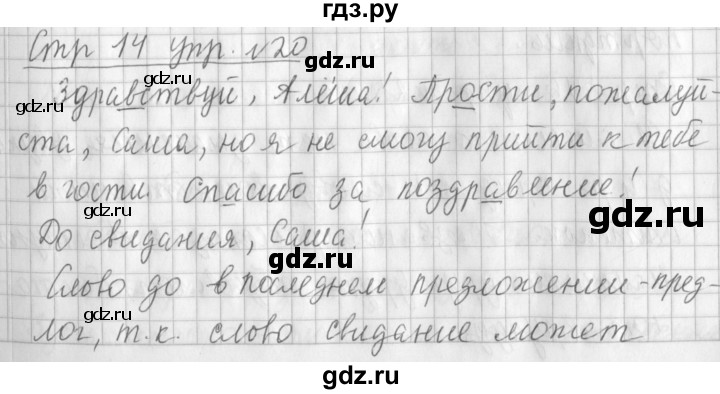 гдз.ру
Стр 14 упр. №20
gdz.ru
gdz.ru
gdz.ru
Здравствуй, Алёша! Прости, пожалуй-
gdz.ru
gdz.ru
ста, Саша, но я не смогу прийти к тебе
в гости. Спасибо за поздравление!
gdz.ru
gdz.ru
gdz.ru
До свидания, Саша!
gdz.ru
Слово до в последнем предложении - пред-
gdz.ru
gdz.ru
лог, т.к. слово свидание может
gdz.ru
gdz.ru